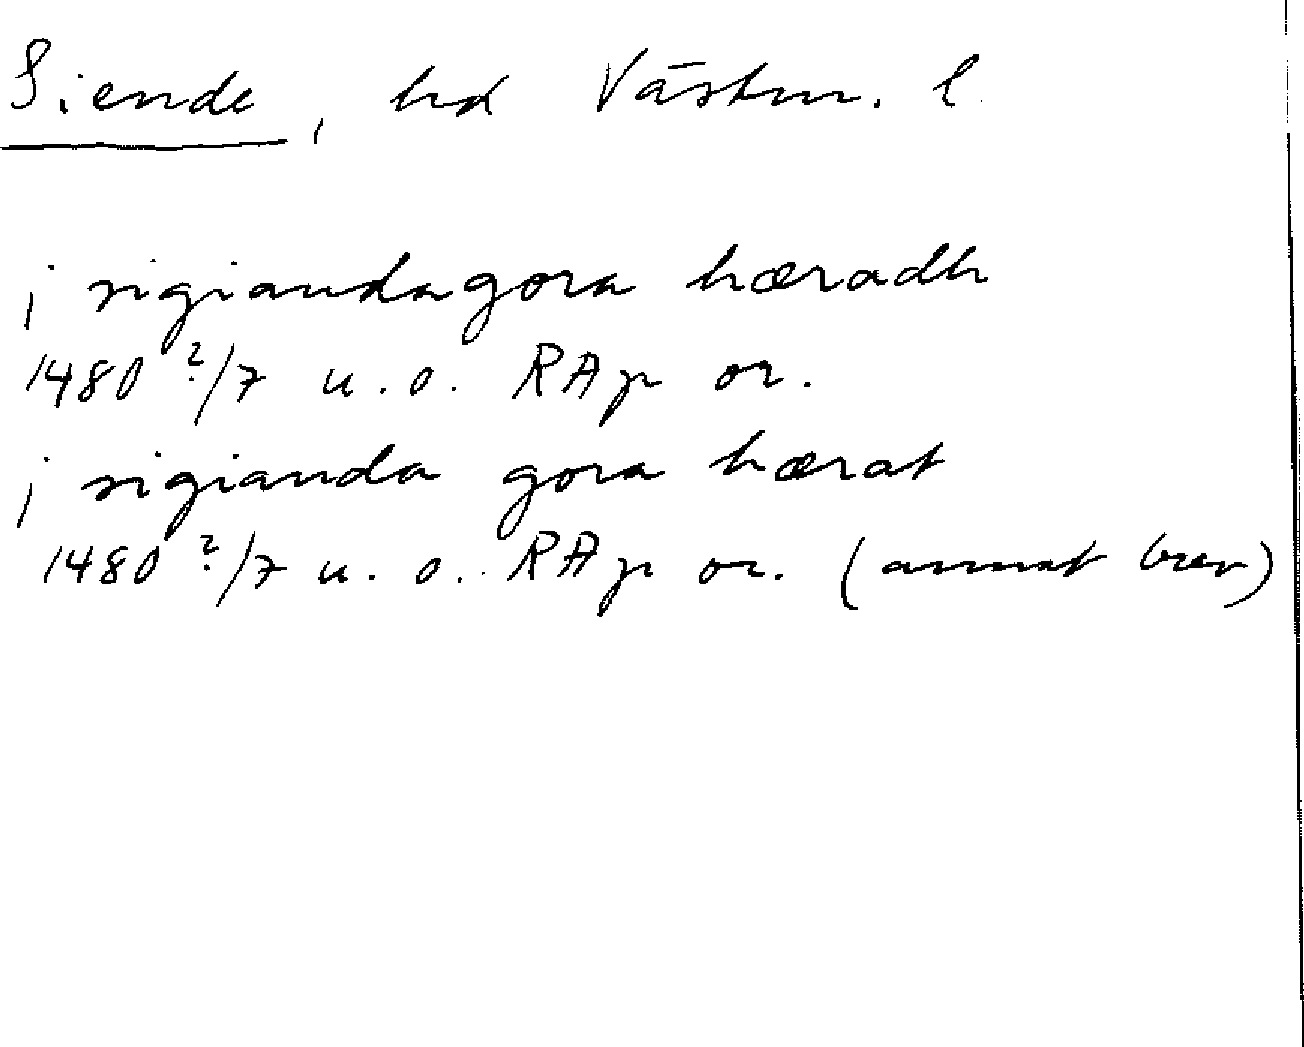 Siende, hd Västm. l.
j sigiandagora hæradh
1480 ?/7 u.o. RAp or.
j sigianda gora hærat
1480 ?/7 u.o. RAp or. (annat brev)